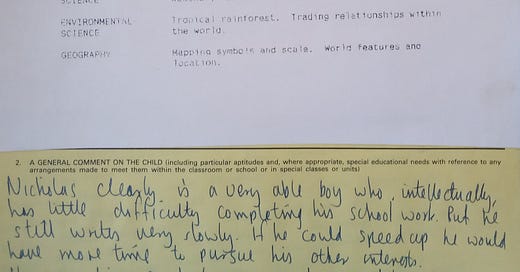 SCIENCE
ENVIRONMENTAL Tropical rainforest. Trading relationships within
SCIENCE the world.
GEOGRAPHY Mapping symbols and scale. World features and
location.
2. A GENERAL COMMENT ON THE CHILD (including particular aptitudes and, where appropriate, special educational needs with reference to any
arrangements made to meet them within the classroom or school or in special classes or units)
Nicholas clearly is a very able boy who, intellectually,
has little difficulty completing his school work. But he
still writes very slowly. If he could speed up he would
have more time to pursue his other interests.